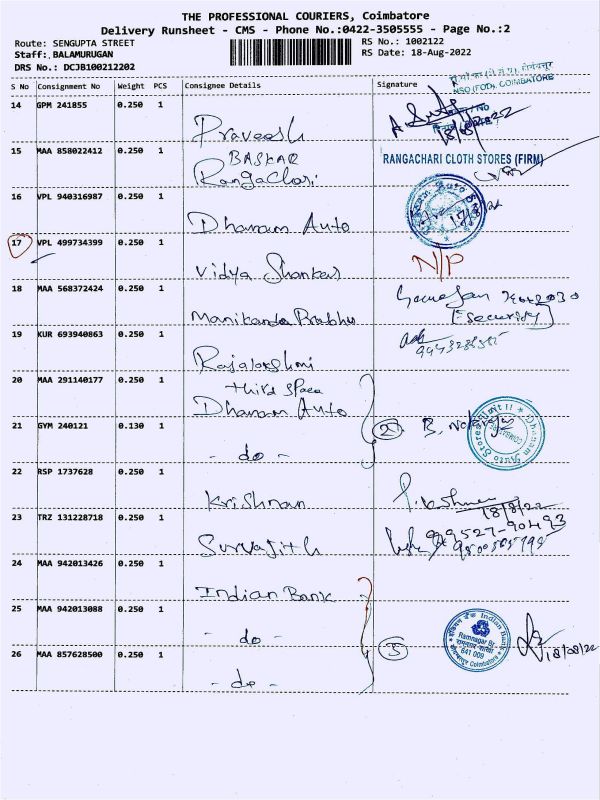 THE PROFESSIONAL COURIERS, Coimbatore
Delivery Runsheet - CMS - Phone No.:0422-3505555 - Page No.:2
Route: SENGUPTA STREET
RS No.: 1002122
Staff: BALAMURUGAN
RS Date: 18-Aug-2022
DRS No.: DCJB100212202
S No Consignment No Weight PCS Consignee Details Signature
NSO(FOD), COIMBATORE
14 GPM 241855 0.250 1
Praveesh
18/8/22
15 MAA 858022412 0.250 1
BASKAR
Rangachari
RANGACHARI CLOTH STORES (FIRM)
16 VPL 940316987 0.250 1
Dhanam Auto
17 VPL 499734399 0.250 1
Vidya Shankar
N/P
18 MAA 568372424 0.250 1
Manikanda Prabhu
(Security)
19 KUR 693940863 0.250 1
Rajalakshmi
20 MAA 291140177 0.250 1
third space
Dhanam Auto
21 GYM 240121 0.130 1
- do -
2
Dhanam Auto Stores
22 RSP 1737628 0.250 1
Krishnan
18/8/22
23 TRZ 131228718 0.250 1
Survajith
99527-90493
24 MAA 942013426 0.250 1
Indian Bank
25 MAA 942013088 0.250 1
- do -
3
Indian Bank
Ramnagar Br.
641 009
Coimbatore
18/08/22
26 MAA 857628500 0.250 1
- do -